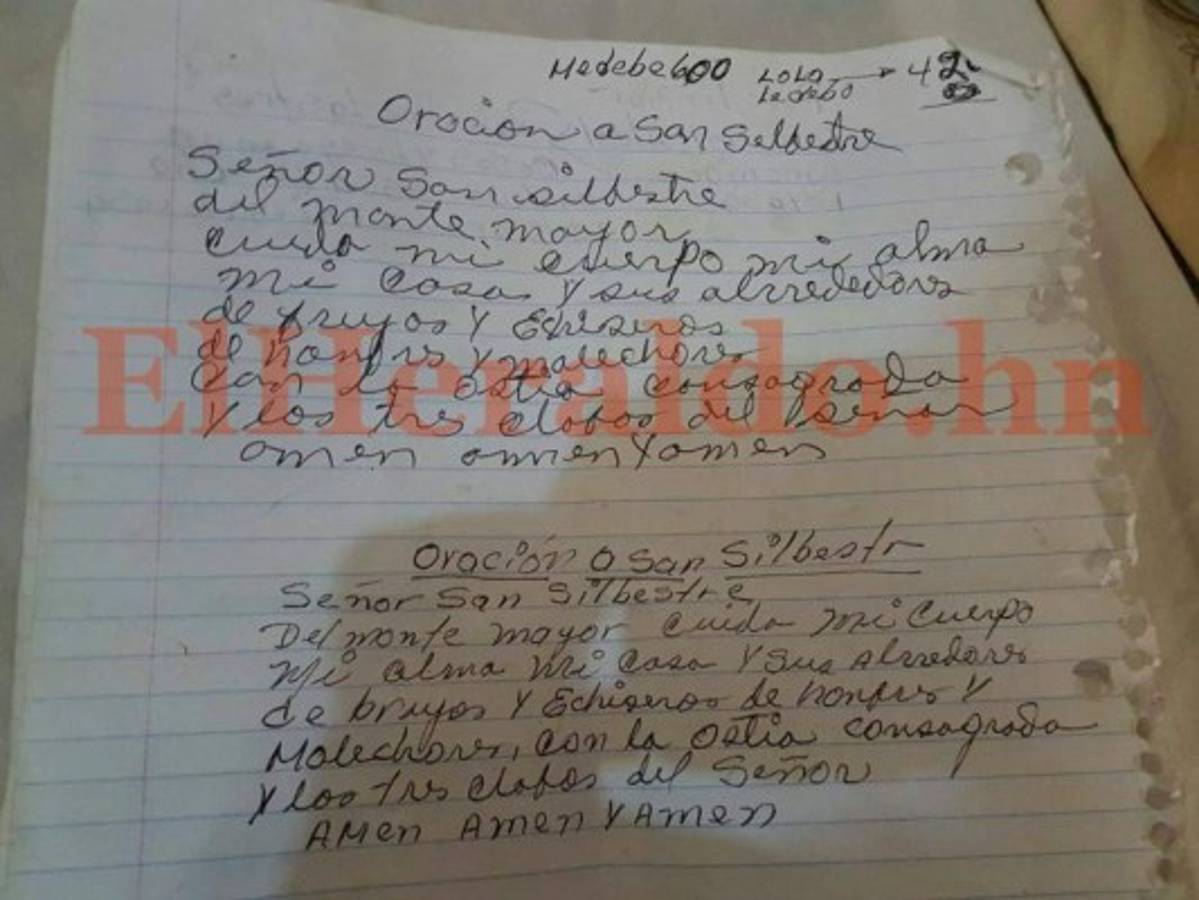 Medebe 600 LOLO 42
Ledebo
Oracion a San Selbestre
Señor San silbestre
del monte mayor
cuida mi cuerpo mi alma
mi casa y sus alrrededores
de bruyos y Echiseros
de honbres y malechores
Con la ostia consagrada
y los tres clabos del señor
amen amen y amen
ElHeraldo.hn
Oración a San Silbestr
Señor San Silbestre
Del monte mayor cuida mi cuerpo
Mi alma mi casa y sus alrredores
de bruyos y Echiseros de honbres y
Malechores, con la Ostia consagrada
y los tres clabos del Señor
AMen Amen y AMen